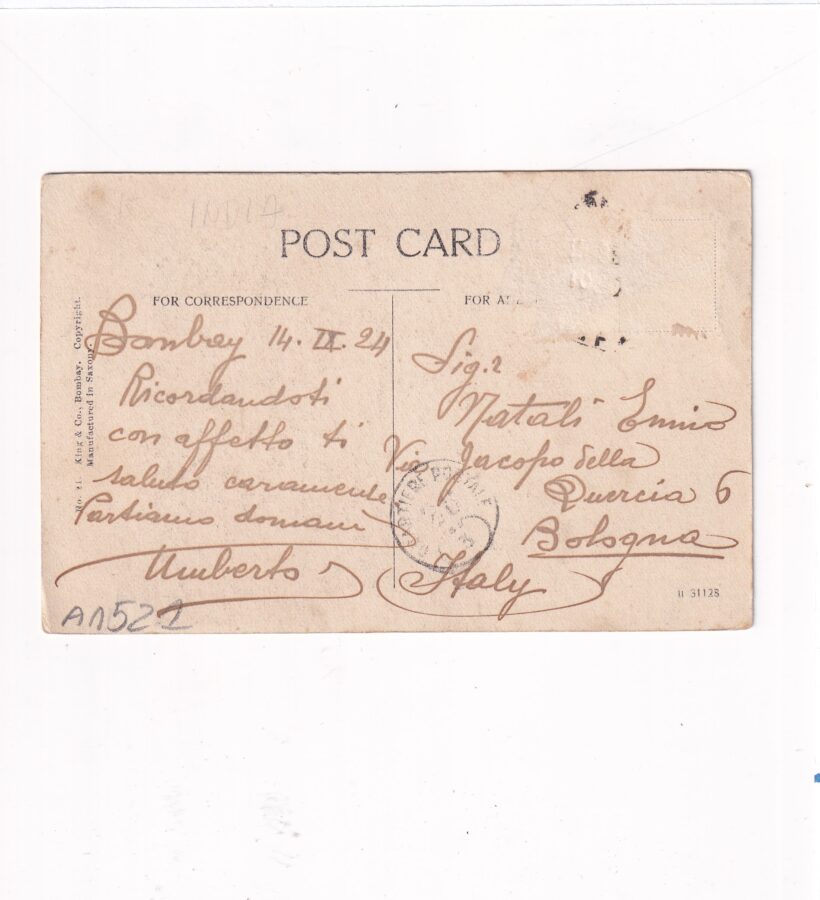 INDIA
POST CARD
FOR CORRESPONDENCE
FOR
No. 21. King & Co., Bombay. Copyright.
Manufactured in Saxony.
Bombay 14.IX.24
Ricordandoti
con affetto ti
saluto caramente
Partiamo domani
Umberto
Sig.r
Natali Ennio
Via Jacopo della
Quercia 6
Bologna
Italy
PORTALETTERE POSTALE
11 31128
A1521